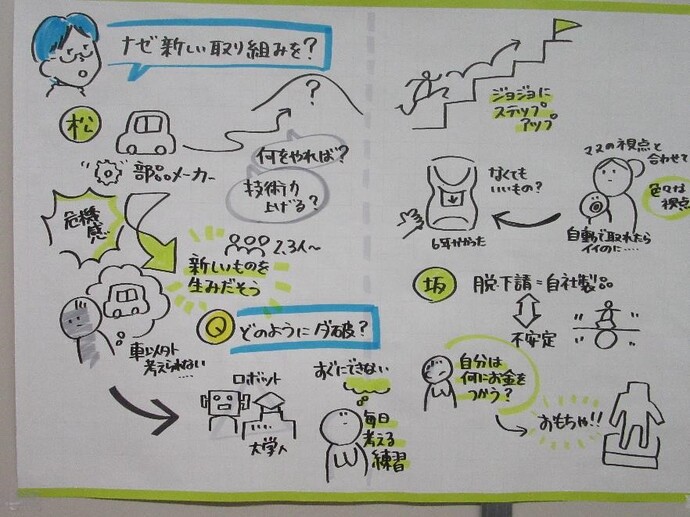 ナゼ新しい取り組みを?
松
?
部品メーカー
何をやれば?
技術力
上げる?
危機
感
2.3人~
新しいものを
生みだそう
車以外
考えられない
····
Q
どのようにダ破?
ロボット
大学へ
すぐにできない
毎日
考える
練習
ジョジョに
ステップ
アップ
なくても
いいもの?
ママの視点と
合わせて
色々な
視点
自動で取れたら
イイのに····
坂
脱下請=自社製品
不安定
自分は
何にお金を
つかう?
おもちゃ!!